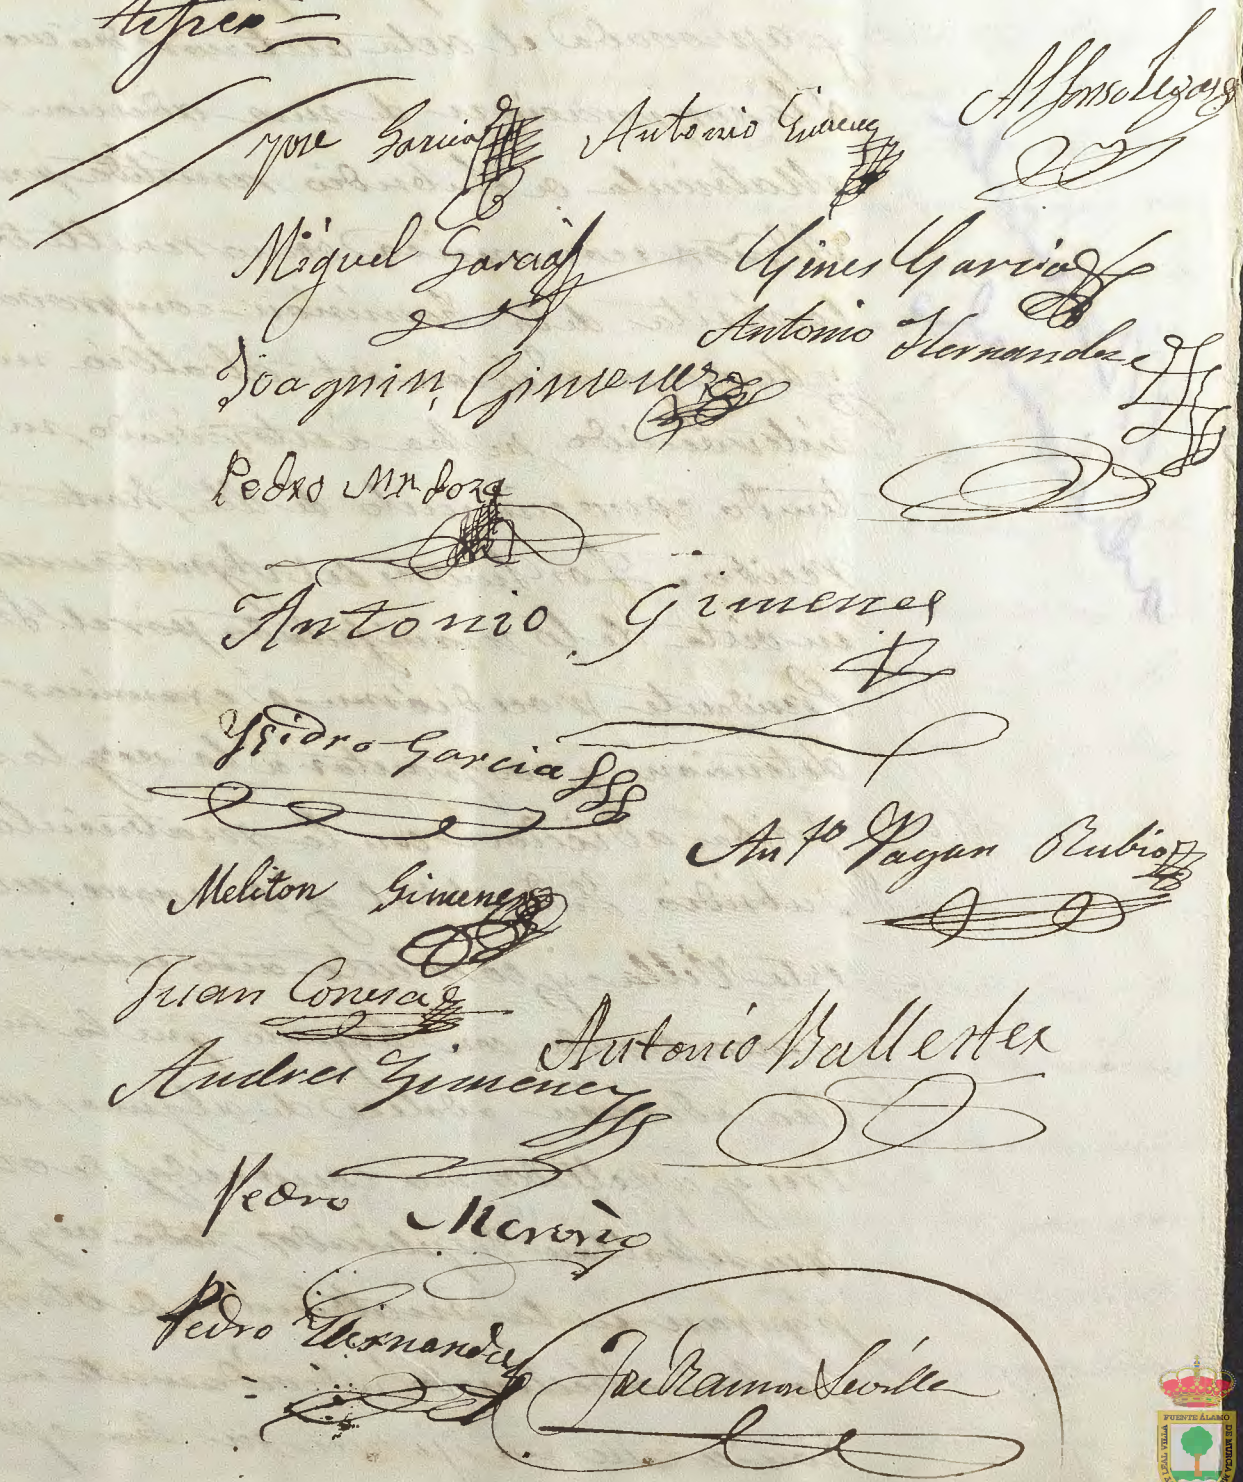 Jose Garcia Antonio Gimenez Alfonso Legaz
Miguel Garcia Gines Garcia
Antonio Hernandez
Joaquin Gimenez
Pedro Mendoza
Antonio Gimenes
Ysidro Garcia
Ant.º Pagan Rubio
Meliton Gimenez
Juan Conesa
Antonio Ballester
Andres Gimenez
Pedro Moreno
Pedro Hernandez
José Ramon Sevilla
FUENTE ÁLAMO
LEAL VILLA
DE MURCIA